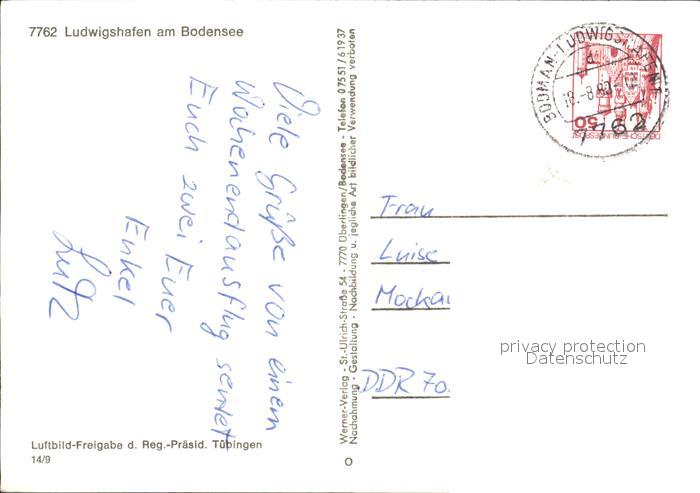 7762 Ludwigshafen am Bodensee
Viele Grüße von einem
Wochenendausflug sendet
Euch zwei Euer
Enkel
Lutz
Luftbild-Freigabe d. Reg.-Präsid. Tübingen
14/9
Werner-Verlag - St.-Ulrich-Straße 54 - 7770 Überlingen/Bodensee - Telefon 07551/61937
Nachahmung - Gestaltung - Nachbildung u. jegliche Art bildlicher Verwendung verboten
BODMAN-LUDWIGSHAFEN 1
d
18.-8.80
7762
50
DEUTSCHE BUNDESPOST
Frau
Luise
Mockau
DDR 70.
privacy protection
Datenschutz